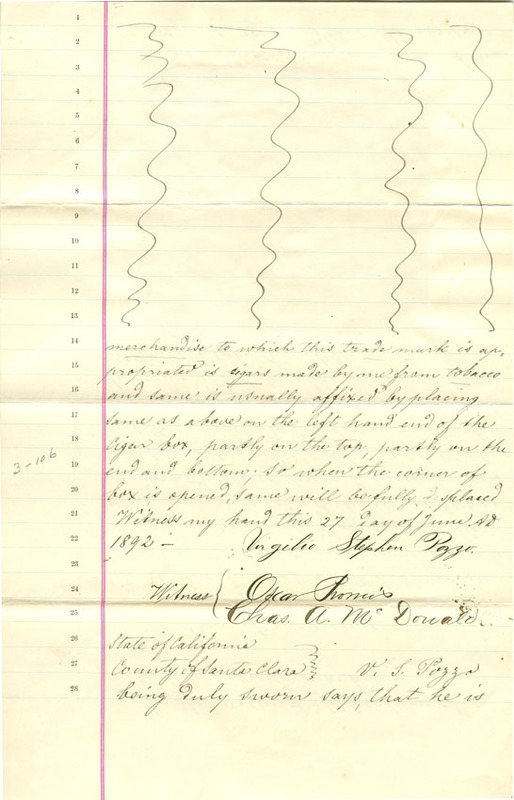 1
2
3
4
5
6
7
8
9
10
11
12
13
14 merchandise to which this trade mark is ap,
15 propriated is cigars made by me from tobacco
16 and same is usually affixed by placing
17 same as above on the left hand end of the
18 cigar box, partly on the top, partly on the
3-106
19 end and bottom; so when the corner of
20 box is opened, same will be fully displaced
21 Witness my hand this 27 day of June AD
22 1892 — Virgilio Stephen Pozzo.
23
24 Witness { Oscar
25 Chas. A. Mc Donald.
26 State of California
27 County of Santa Clara } V. S. Pozzo
28 being duly sworn says, that he is